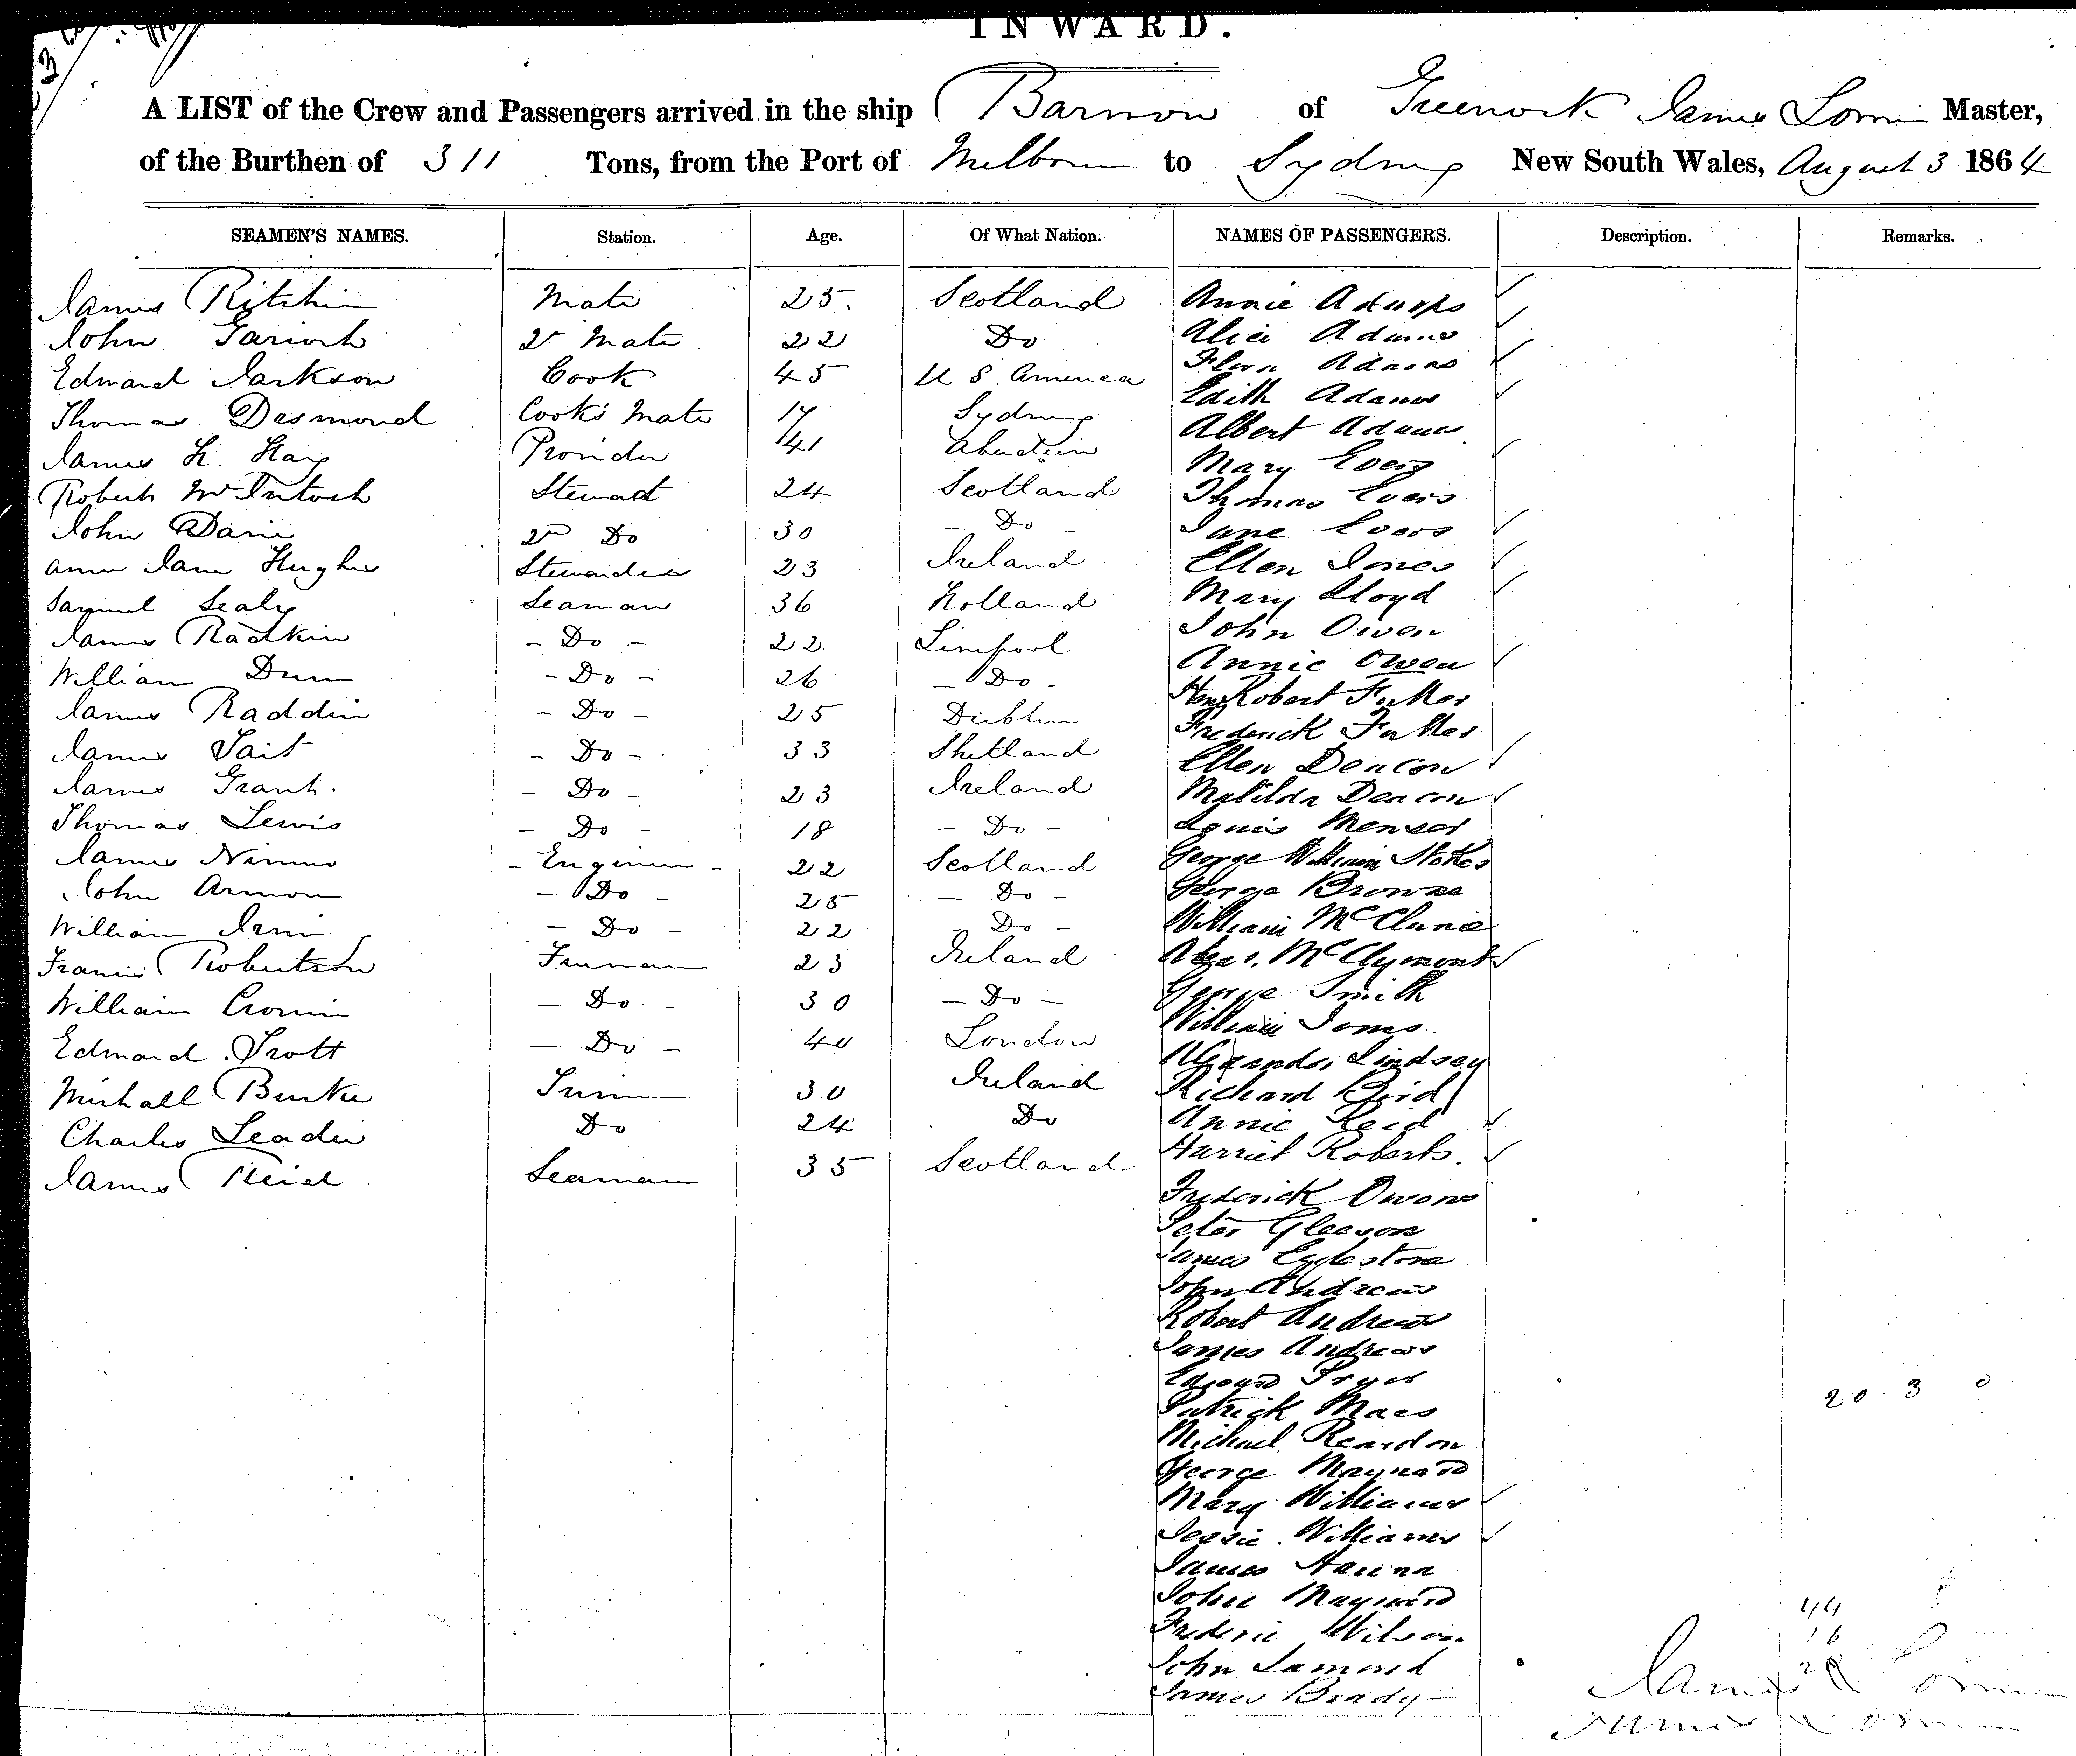 INWARD.
A LIST of the Crew and Passengers arrived in the ship Barwon of Greenock James Lorn Master,
of the Burthen of 311 Tons, from the Port of Melborn to Sydney New South Wales, August 3 1864
SEAMEN'S NAMES. Station. Age. Of What Nation. NAMES OF PASSENGERS. Description. Remarks.
James Ritchie Mate 25. Scotland Annie Adams
John Garioch 2d Mate 22 Do Alice Adams
Edward Jackson Cook 45 U S America Flora Adams
Thomas Desmond Cooks Mate 17 Sydney Edith Adams
James H. Hay Provider 41 Aberdein Albert Adams
Robert McIntosh Steward 24 Scotland Mary Evers
John Davie 2d Do 30 - Do - Thomas Evers
Jane Evers
Ann Jane Hughes Stewardess 23 Ireland Ellen Jones
Samuel Sealy Seaman 36 Holland Mary Lloyd
James Radkin - Do - 22 Liverpool John Owen
William Dunn - Do - 26 - Do - Annie Owen
James Raddin - Do - 25 Dublin Robert
Frederick
James Tait - Do - 33 Shetland Ellen Deacon
James Grant. - Do - 23 Ireland Matilda Deacon
Thomas Lewis - Do - 18 - Do - Agnis Menser
James Nimmo - Engineer - 22 Scotland George William Stokes
John Armon - Do - 25 - Do - George Browne
William - Do - 22 - Do - William McClune
Francis Robertson Fireman 23 Ireland McClymont
William Cronin - Do - 30 - Do - George Smith
William Jones
Edmond Trott - Do - 40 London Alexander Lindsay
Michall Burke Trim 30 Ireland Richard Reid
Charles Leader Do 24 Do Annie Reid
James Reid Seaman 35 Scotland Harriet Roberts.
Frederick Owens
Peter Gleeson
James Eglestone
John Andrews
Robert Andrews
James Andrews
Edward Pryor
Patrick Maes
20 3 0
Michael Reardon
George Maynard
Mary Williams
Jessie Williams
James Hanna
John Maynard
44
Frederic Wilson
16
John Lamond
28
James Brady
James Lorn
James Lorn